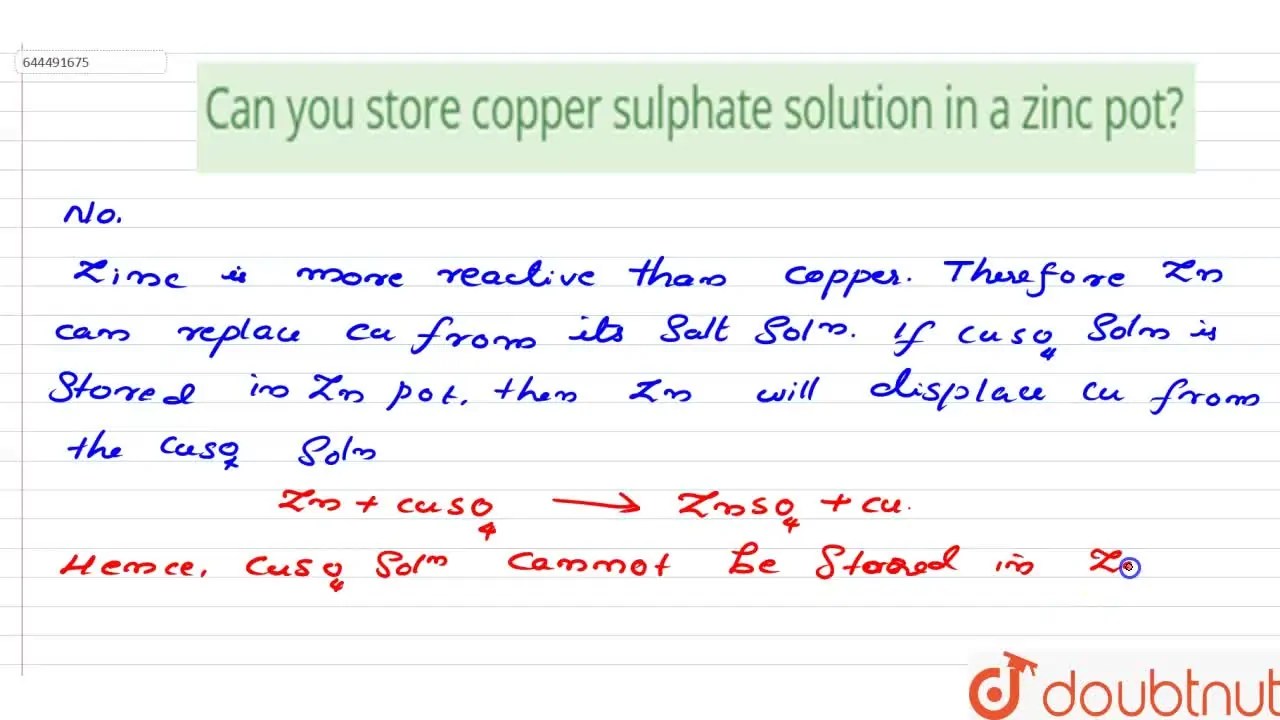 644491675
Can you store copper sulphate solution in a zinc pot?
No.
Zinc is more reactive than copper. Therefore Zn
can replace Cu from its Salt Solⁿ. If CuSO₄ Solⁿ is
Stored in Zn pot, then Zn will displace Cu from
the CuSO₄ Solⁿ
Zn + CuSO₄ → ZnSO₄ + Cu.
Hence, CuSO₄ Solⁿ cannot be Stored in Z
doubtnut